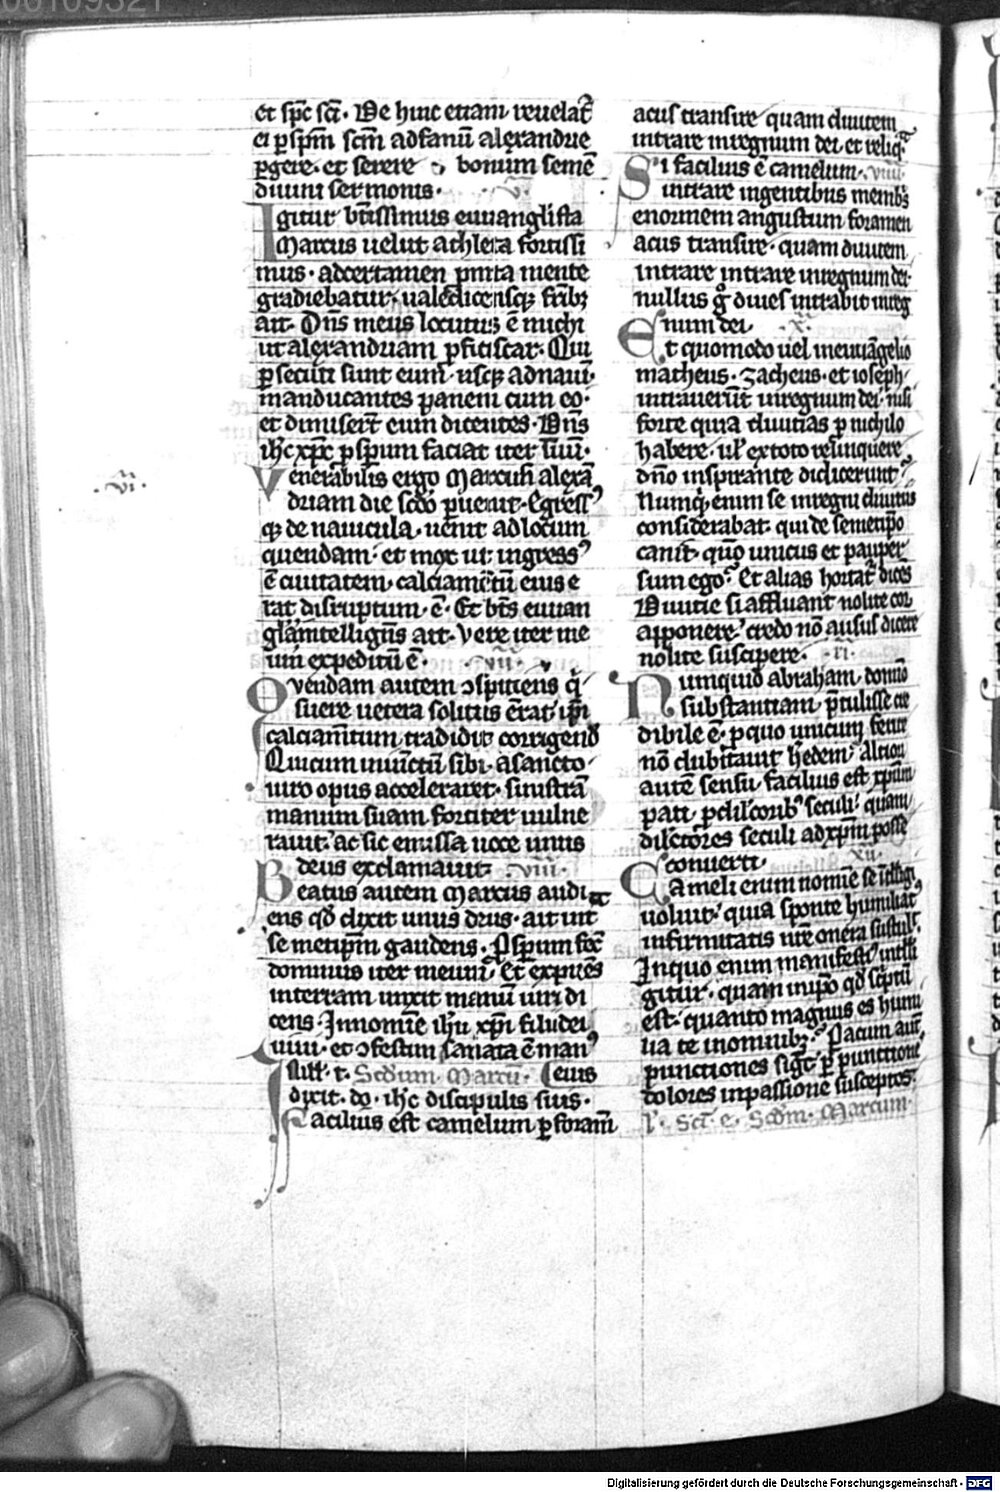 et sp̄c sc̄i · De hinc etiam reuelat̄
ei p sp̄m sc̄m ad fanū alexandrie
pgere · et serere bonum semē
diuini sermonis · v̄ ·
Igitur bt̄issimus euuanglista
Marcus uelut athleta fortissi
mus · ad certamen
gradiebatur · ualedicensq; fr̄ib;
ait · Dn̄s meus locutus ē michi
ut alexandriam pficiscar · Qui
psecuti sunt eum usq; ad nauī ·
manducantes panem cum eo ·
et dimisert̄ eum dicentes · Dn̄s
ih̄c xp̄c pspum faciat iter tuū ·
Venerabilis ergo Marcus alexā
· vi ·
driam die sc̄do puenit · Egress
q; de nauicula · uenit ad locum
quendam · et mox ut ingress
ē ciuitatem · calciam̄tū eius e
rat disruptum · ē · Et bt̄s euuan
gl̄a intelligēs ait · Vere iter me
um expeditū ē · vii ·
Quendam autem ɔspiciens q̄
suere uetera solitus erat ip̄i
calciam̄tum tradidit corrigend
Qui cum iniūctū sibi · a sancto
uiro opus acceleraret · sinistrā
manum suam fortiter uulne
rauit · ac sic emissa uoce unus
deus exclamauit · viii ·
Beatus autem Marcus audi
ens qd̄ dixit unus deus · ait int̄
semetip̄m gaudens · Pspum fec̄
dominus iter meum · Et expuēs
in terram unxit manū uiri di
cens · In nomīe ih̄u xp̄i filii dei
uiui · et ɔfestim sanata ē man
Scd̄um Marcū · eius
dixit · dō · ih̄c discipulis suis ·
Facilius est camelum p foram̄
acus transire quam diuitem
intrare in regnum dei · et reliq ·
Si facilius ē camelum · viiii
intrare ingentibus membs
enormem angustum foramen
acus transire · quam diuitem
intrare intrare in regnum dei ·
nullus g° diues intrabit in reg
num dei · x ·
Et quomodo uel in euuāgelio
matheus · Zacheus · et ioseph
intrauert̄ in regnum dei · nisi
forte quia diuitias p nichilo
habere · ul̄ ex toto relinquere
dn̄o inspirante didicerunt
Numq̄ enim se in regni diuitiis
considerabat · qui de semetip̄o
canit · quō unicus et pauper
sum ego · Et alias hortat̄ dicēs
Diuitie si affluant nolite cor
apponere · credo nō ausus dicere
nolite suscipere · xi ·
Numquid abraham domno
substantiam ptulisse cre
dibile ē · p quo unicum ferire
nō dubitauit h̄edem · Altiori
autē sensu facilius est xpum
pati p dilcorib seculi · quam
dilectores seculi ad xp̄m posse
conuerti · xii ·
Cameli enim nomīe se
uoluit · quia sponte humiliat
infirmitatis nr̄e onera sustul ·
In quo enim manifesti intelli
gitur · quam in ip̄o qd̄ scptū
est · quanto magnus es humi
lia te in omnib; · Pacum aut̄
punctiones sigt̄ · p punctionē
dolores in passione susceptos ·
Scd̄m · Marcum ·
Digitalisierung gefördert durch die Deutsche Forschungsgemeinschaft - DFG